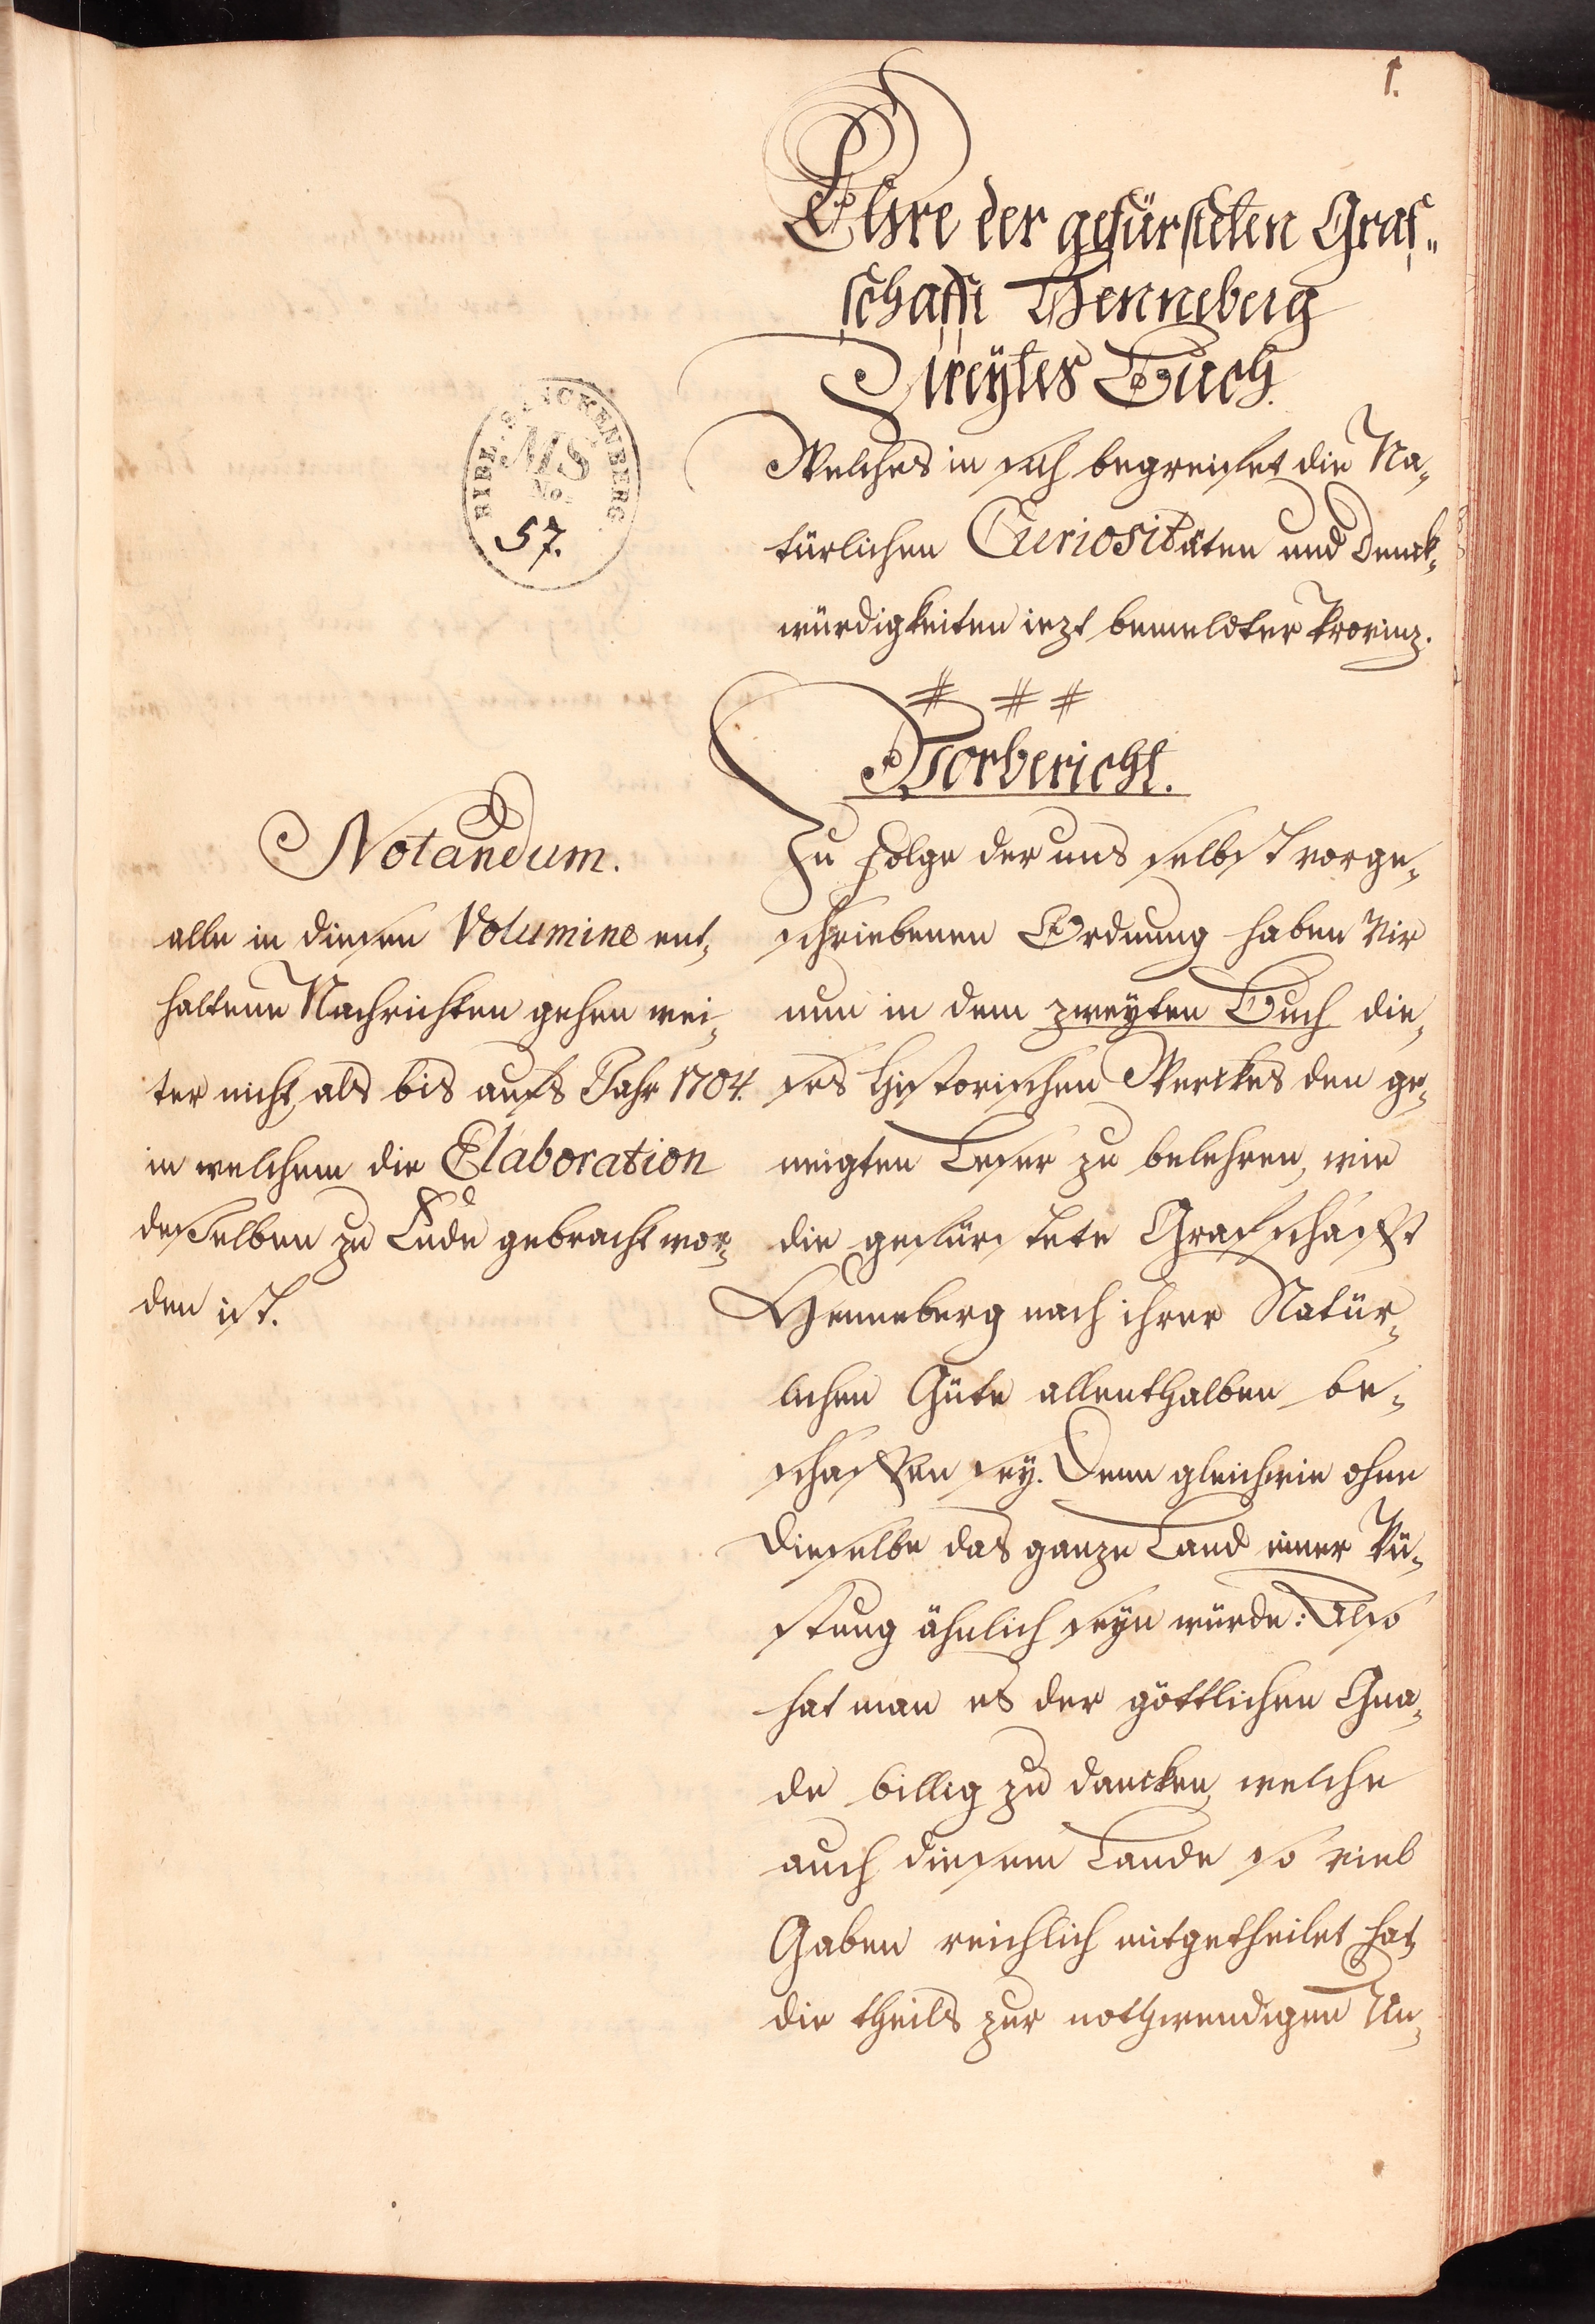 1.
Ehre der gefürsteten Graf„
schafft Henneberg
Zweytes Buch.
Welches in sich begreifet die Na„
türlichen Curiositäten und Denck„
würdigkeiten iezt bemeldter Provinz.
# # #
Vorbericht.
Zu Folge der uns selbst vorge„
schriebenen Ordnung haben Wir
nun in dem zweyten Buch die„
ses Historischen Werckes den ge„
neigten Leser zu belehren, wie
die gefürstete Grafschafft
Henneberg nach ihrer Natür„
lichen Güte allenthalben be„
schaffen sey. Denn gleichwie ohne
dieselbe das ganze Land einer Wü„
stung ähnlich seyn würde: Also
hat man es der göttlichen Gna„
de billig zu dancken, welche
auch diesem Lande so viel
Gaben reichlich mitgetheilet hat,
die theils zur nothwendigen Un„
BIBL. SENCKENBERG.
MS
No.
57.
Notandum.
alle in diesen Volumine ent„
haltene Nachrichten gehen wei„
ter nicht, als bis aufs Jahr 1704.
in welchem die Elaboration
desselben zu Ende gebracht wor„
den ist.